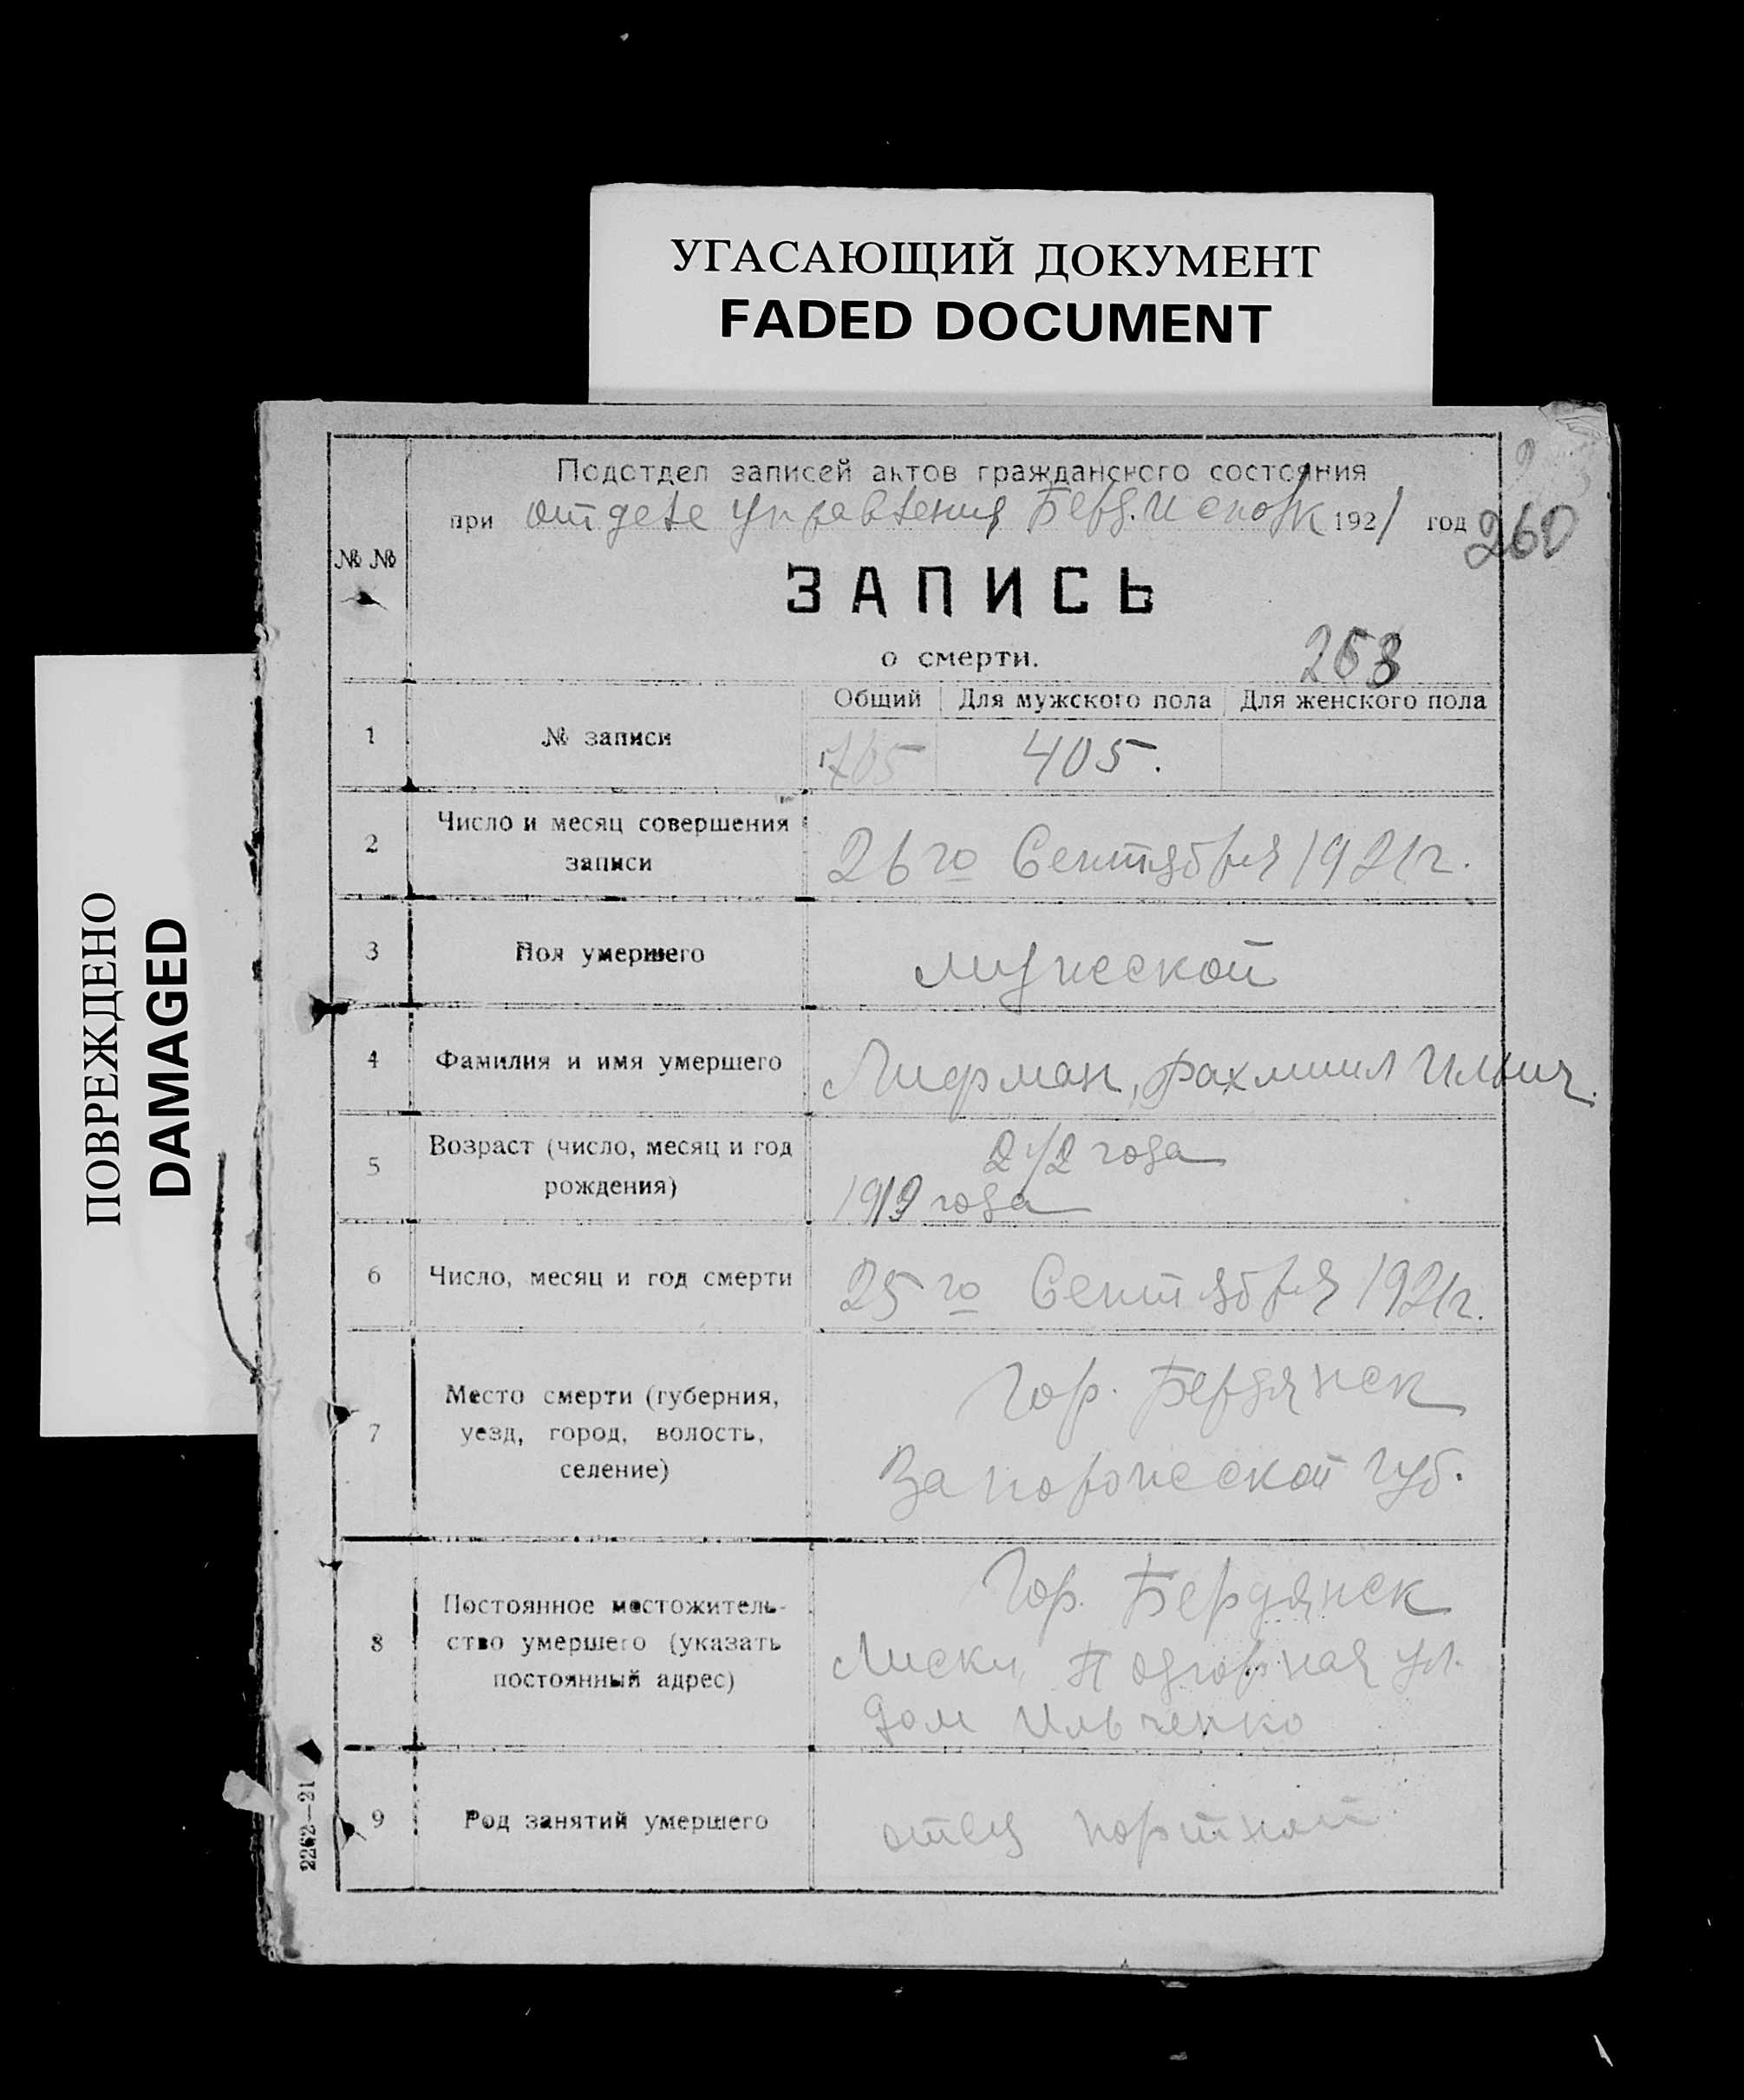 УГАСАЮЩИЙ ДОКУМЕНТ
FADED DOCUMENT
ПОВРЕЖДЕНО
DAMAGED
Подотдел записей актов гражданского состояния
при отделе управления Берд. Исполк 1921 год
260
№ №
ЗАПИСЬ
о смерти.
Общий Для мужского пола Для женского пола
1 № записи 705 405.
2 Число и месяц совершения
записи
26 го Сентября 1921 г.
3 Пол умершего мужской
4 Фамилия и имя умершего Лифман, Рахмиил Ильич.
5 Возраст (число, месяц и год
рождения)
2 1/2 года
1919 года
6 Число, месяц и год смерти 25 го Сентября 1921 г.
7 Место смерти (губерния,
уезд, город, волость,
селение)
Гор. Бердянск
Запорожской губ.
8 Постоянное местожитель-
ство умершего (указать
постоянный адрес)
Гор. Бердянск
Лиски, Подгорная ул.
дом Ильченко
9 Род занятий умершего отец портной
2262—21